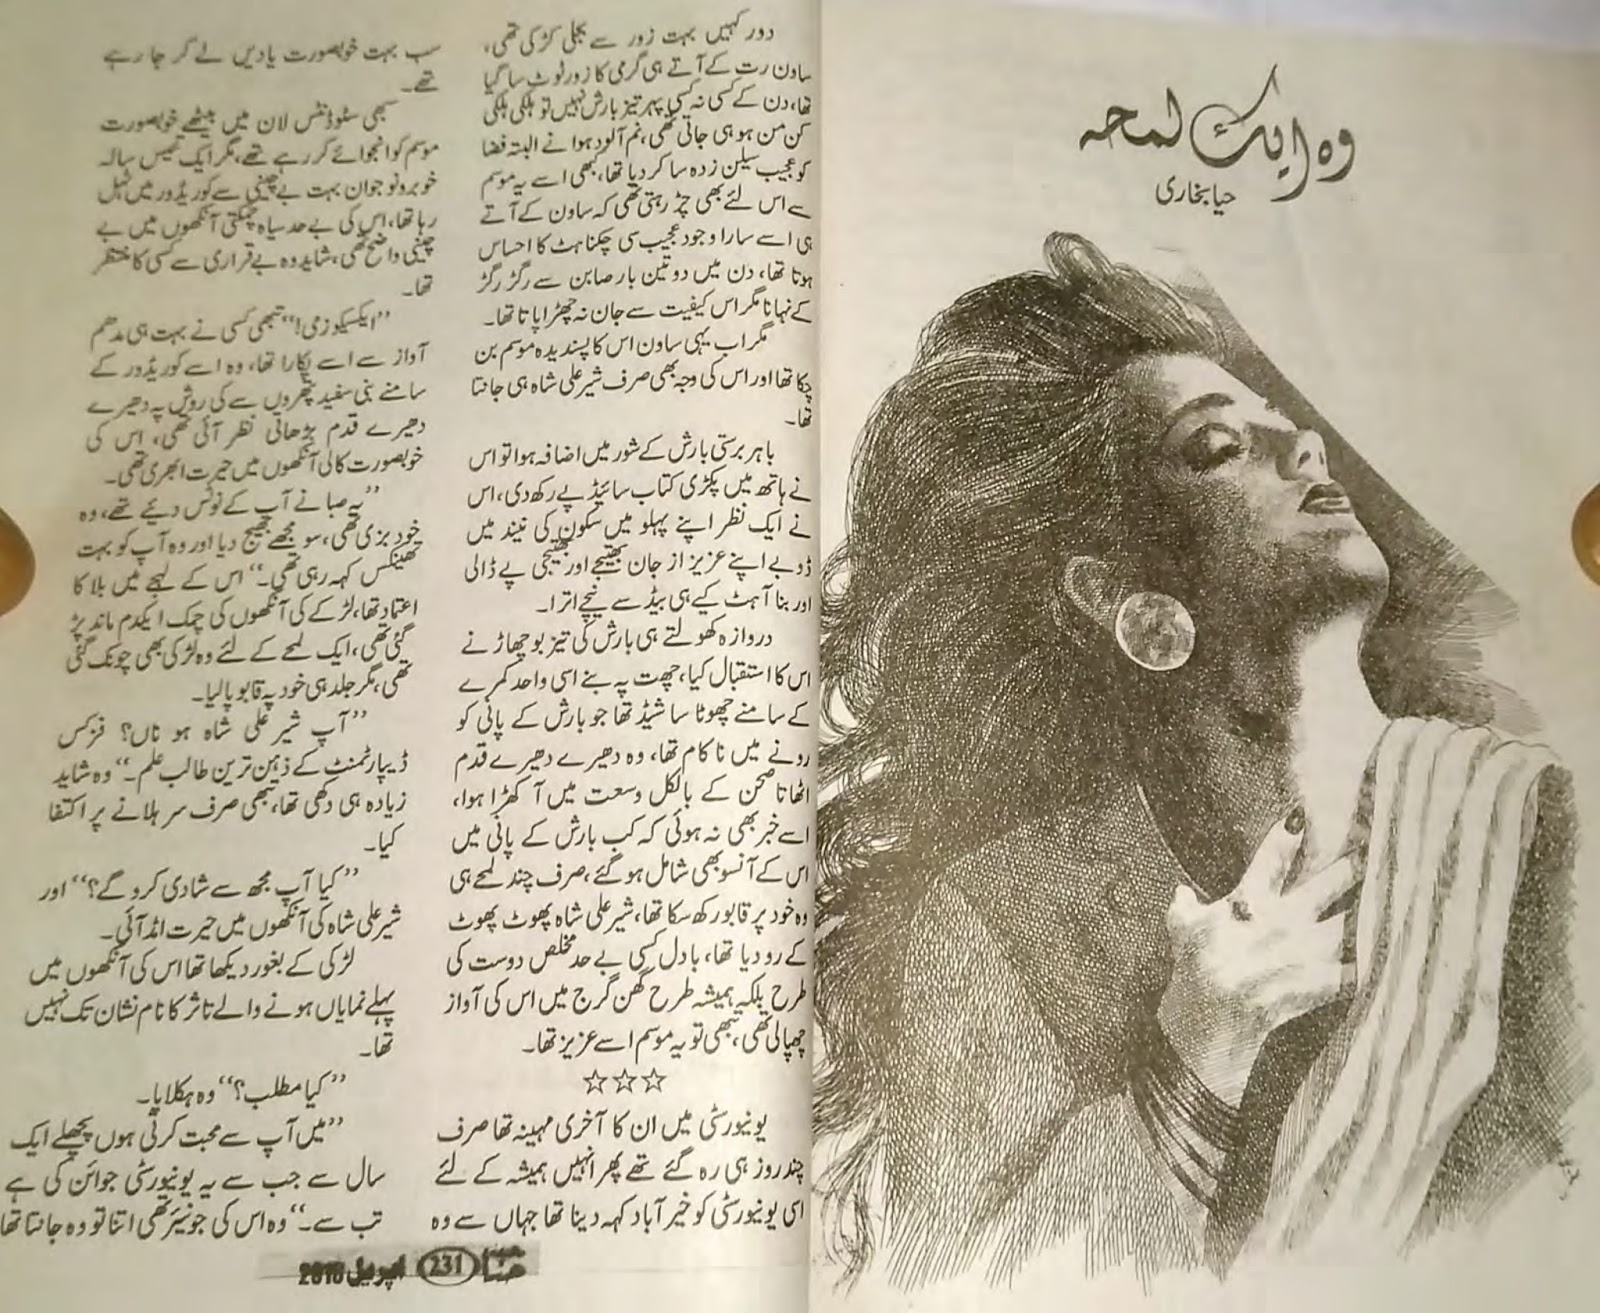 وہ ایک لمحہ
حیا بخاری
دور کہیں بہت زور سے بجلی کڑکی تھی،
ساون رت کے آتے ہی گرمی کا زور ٹوٹ سا گیا
تھا، دن کے کسی نہ کسی پہر تیز بارش نہیں تو ہلکی ہلکی
کن من ہو ہی جاتی تھی، نم آلود ہوا نے البتہ فضا
کو عجیب سیلن زدہ سا کر دیا تھا، کبھی اسے یہ موسم
سے اس لئے بھی چڑ رہتی تھی کہ ساون کے آتے
ہی اسے سارا وجود عجیب سی چکناہٹ کا احساس
ہوتا تھا، دن میں دو تین بار صابن سے رگڑ رگڑ
کے نہانا مگر اس کیفیت سے جان نہ چھڑا پاتا تھا۔
مگر اب یہی ساون اس کا پسندیدہ موسم بن
چکا تھا اور اس کی وجہ بھی صرف شیر علی شاہ ہی جانتا
تھا۔
باہر برستی بارش کے شور میں اضافہ ہوا تو اس
نے ہاتھ میں پکڑی کتاب سائیڈ پے رکھ دی، اس
نے ایک نظر اپنے پہلو میں سکون کی نیند میں
ڈوبے اپنے عزیز از جان بھتیجے اور بھتیجی پے ڈالی
اور بنا آہٹ کیے ہی بیڈ سے نیچے اترا۔
دروازہ کھولتے ہی بارش کی تیز بوچھاڑ نے
اس کا استقبال کیا، چھت پہ بنے اسی واحد کمرے
کے سامنے چھوٹا سا شیڈ تھا جو بارش کے پانی کو
رونے میں ناکام تھا، وہ دھیرے دھیرے قدم
اٹھاتا صحن کے بالکل وسعت میں آ کھڑا ہوا،
اسے خبر بھی نہ ہوئی کہ کب بارش کے پانی میں
اس کے آنسو بھی شامل ہو گئے، صرف چند لمحے ہی
وہ خود پر قابو رکھ سکا تھا، شیر علی شاہ پھوٹ پھوٹ
کے رو دیا تھا، بادل کسی بے حد مخلص دوست کی
طرح بلکہ ہمیشہ طرح گھن گرج میں اس کی آواز
چھپا لی تھی، تبھی تو یہ موسم اسے عزیز تھا۔
☆☆☆
یونیورسٹی میں ان کا آخری مہینہ تھا صرف
چند روز ہی رہ گئے تھے پھر انہیں ہمیشہ کے لئے
اسی یونیورسٹی کو خیر آباد کہہ دینا تھا جہاں سے وہ
سب بہت خوبصورت یادیں لے کر جا رہے
تھے۔
سبھی سٹوڈنٹس لان میں بیٹھے خوبصورت
موسم کو انجوائے کر رہے تھے، مگر ایک تیس سالہ
خوبرو نوجوان بہت بے چینی سے کوریڈور میں ٹہل
رہا تھا، اس کی بے حد سیاہ چمکتی آنکھوں میں بے
چینی واضح تھی، شاید وہ بے قراری سے کسی کا منتظر
تھا۔
”ایکسکیوزمی!“ تبھی کسی نے بہت ہی مدھم
آواز سے اسے پکارا تھا، وہ اسے کوریڈور کے
سامنے بنی سفید پتھروں سے کی روش پہ دھیرے
دھیرے قدم بڑھاتی نظر آئی تھی، اس کی
خوبصورت کالی آنکھوں میں حیرت ابھری تھی۔
”یہ صبا نے آپ کے نوٹس دیئے تھے، وہ
خود بزی تھی، سو مجھے بھیج دیا اور وہ آپ کو بہت
تھینکس کہہ رہی تھی۔“ اس کے لہجے میں بلا کا
اعتماد تھا، لڑکے کی آنکھوں کی چمک ایکدم ماند پڑ
گئی تھی، ایک لمحے کے لئے وہ لڑکی بھی چونک گئی
تھی، مگر جلد ہی خود پہ قابو پا لیا۔
”آپ شیر علی شاہ ہو ناں؟ فزکس
ڈیپارٹمنٹ کے ذہین ترین طالب علم۔“ وہ شاید
زیادہ ہی دکھی تھا، تبھی صرف سر ہلانے پر اکتفا
کیا۔
”کیا آپ مجھ سے شادی کرو گے؟“ اور
شیر علی شاہ کی آنکھوں میں حیرت امڈ آئی۔
لڑکی کے بغور دیکھا تھا اس کی آنکھوں میں
پہلے نمایاں ہونے والے تاثر کا نام نشان تک نہیں
تھا۔
”کیا مطلب؟“ وہ ہکلایا۔
”میں آپ سے محبت کرتی ہوں پچھلے ایک
سال سے جب سے یہ یونیورسٹی جوائن کی ہے
تب سے۔“ وہ اس کی جونیئر تھی اتنا تو وہ جانتا تھا
حنا 231 اپریل